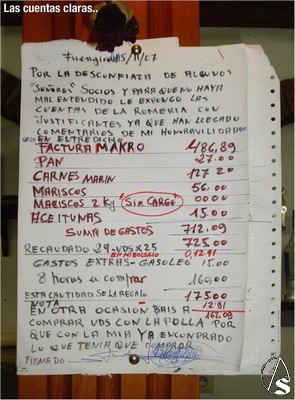 Las cuentas claras..
Fuengirola 15/11/07
POR LA DESCONFIAZA DE ALGUNOS
"SEÑORES" SOCIOS Y PARA QUE NO HAYA
MAL ENTENDIDO LE EXPONGO LAS
CUENTAS DE LA ROMERIA CON
JUSTIFICANTES YA QUE HAN LLEGADO
COMENTARIOS DE MI HONRAVILIDAD
EN ENTREDICHO
FACTURA MAKRO 486,89
PAN 27.00
CARNES MARIN 127.20
MARISCOS 56,00
MARISCOS 2 Kg "Sin CARGO" 0000
ACEITUNAS 15.00
SUMA DE GASTOS 712,09
RECAUDADO 29-UDS X 25 725.00
EN MI BOLSILLO 0,12,91
GASTOS EXTRAS-GASOLEO 15.00
8 horas a comprar 160,00
ESTA CANTIDAD SE LA REGALO 175.00
NOTA 12.91
162.09
EN OTRA OCASION BAIS A
COMPRAR UDS CON LA POLLA POR
QUE CON LA MIA YA E COMPRADO
LO QUE TENIA QUE COMPRAR
FIRMADO